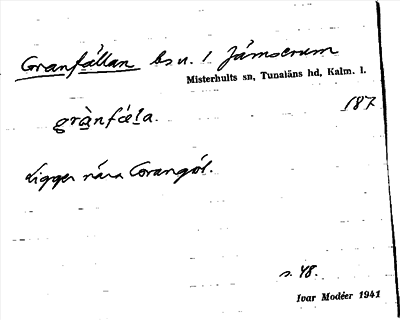 Granfällan bs u. 1 Jämserum
Misterhults sn, Tunaläns hd, Kalm. l.
187
grànfäla.
Ligger nära Grangöl.
s. 48.
Ivar Modéer 1941